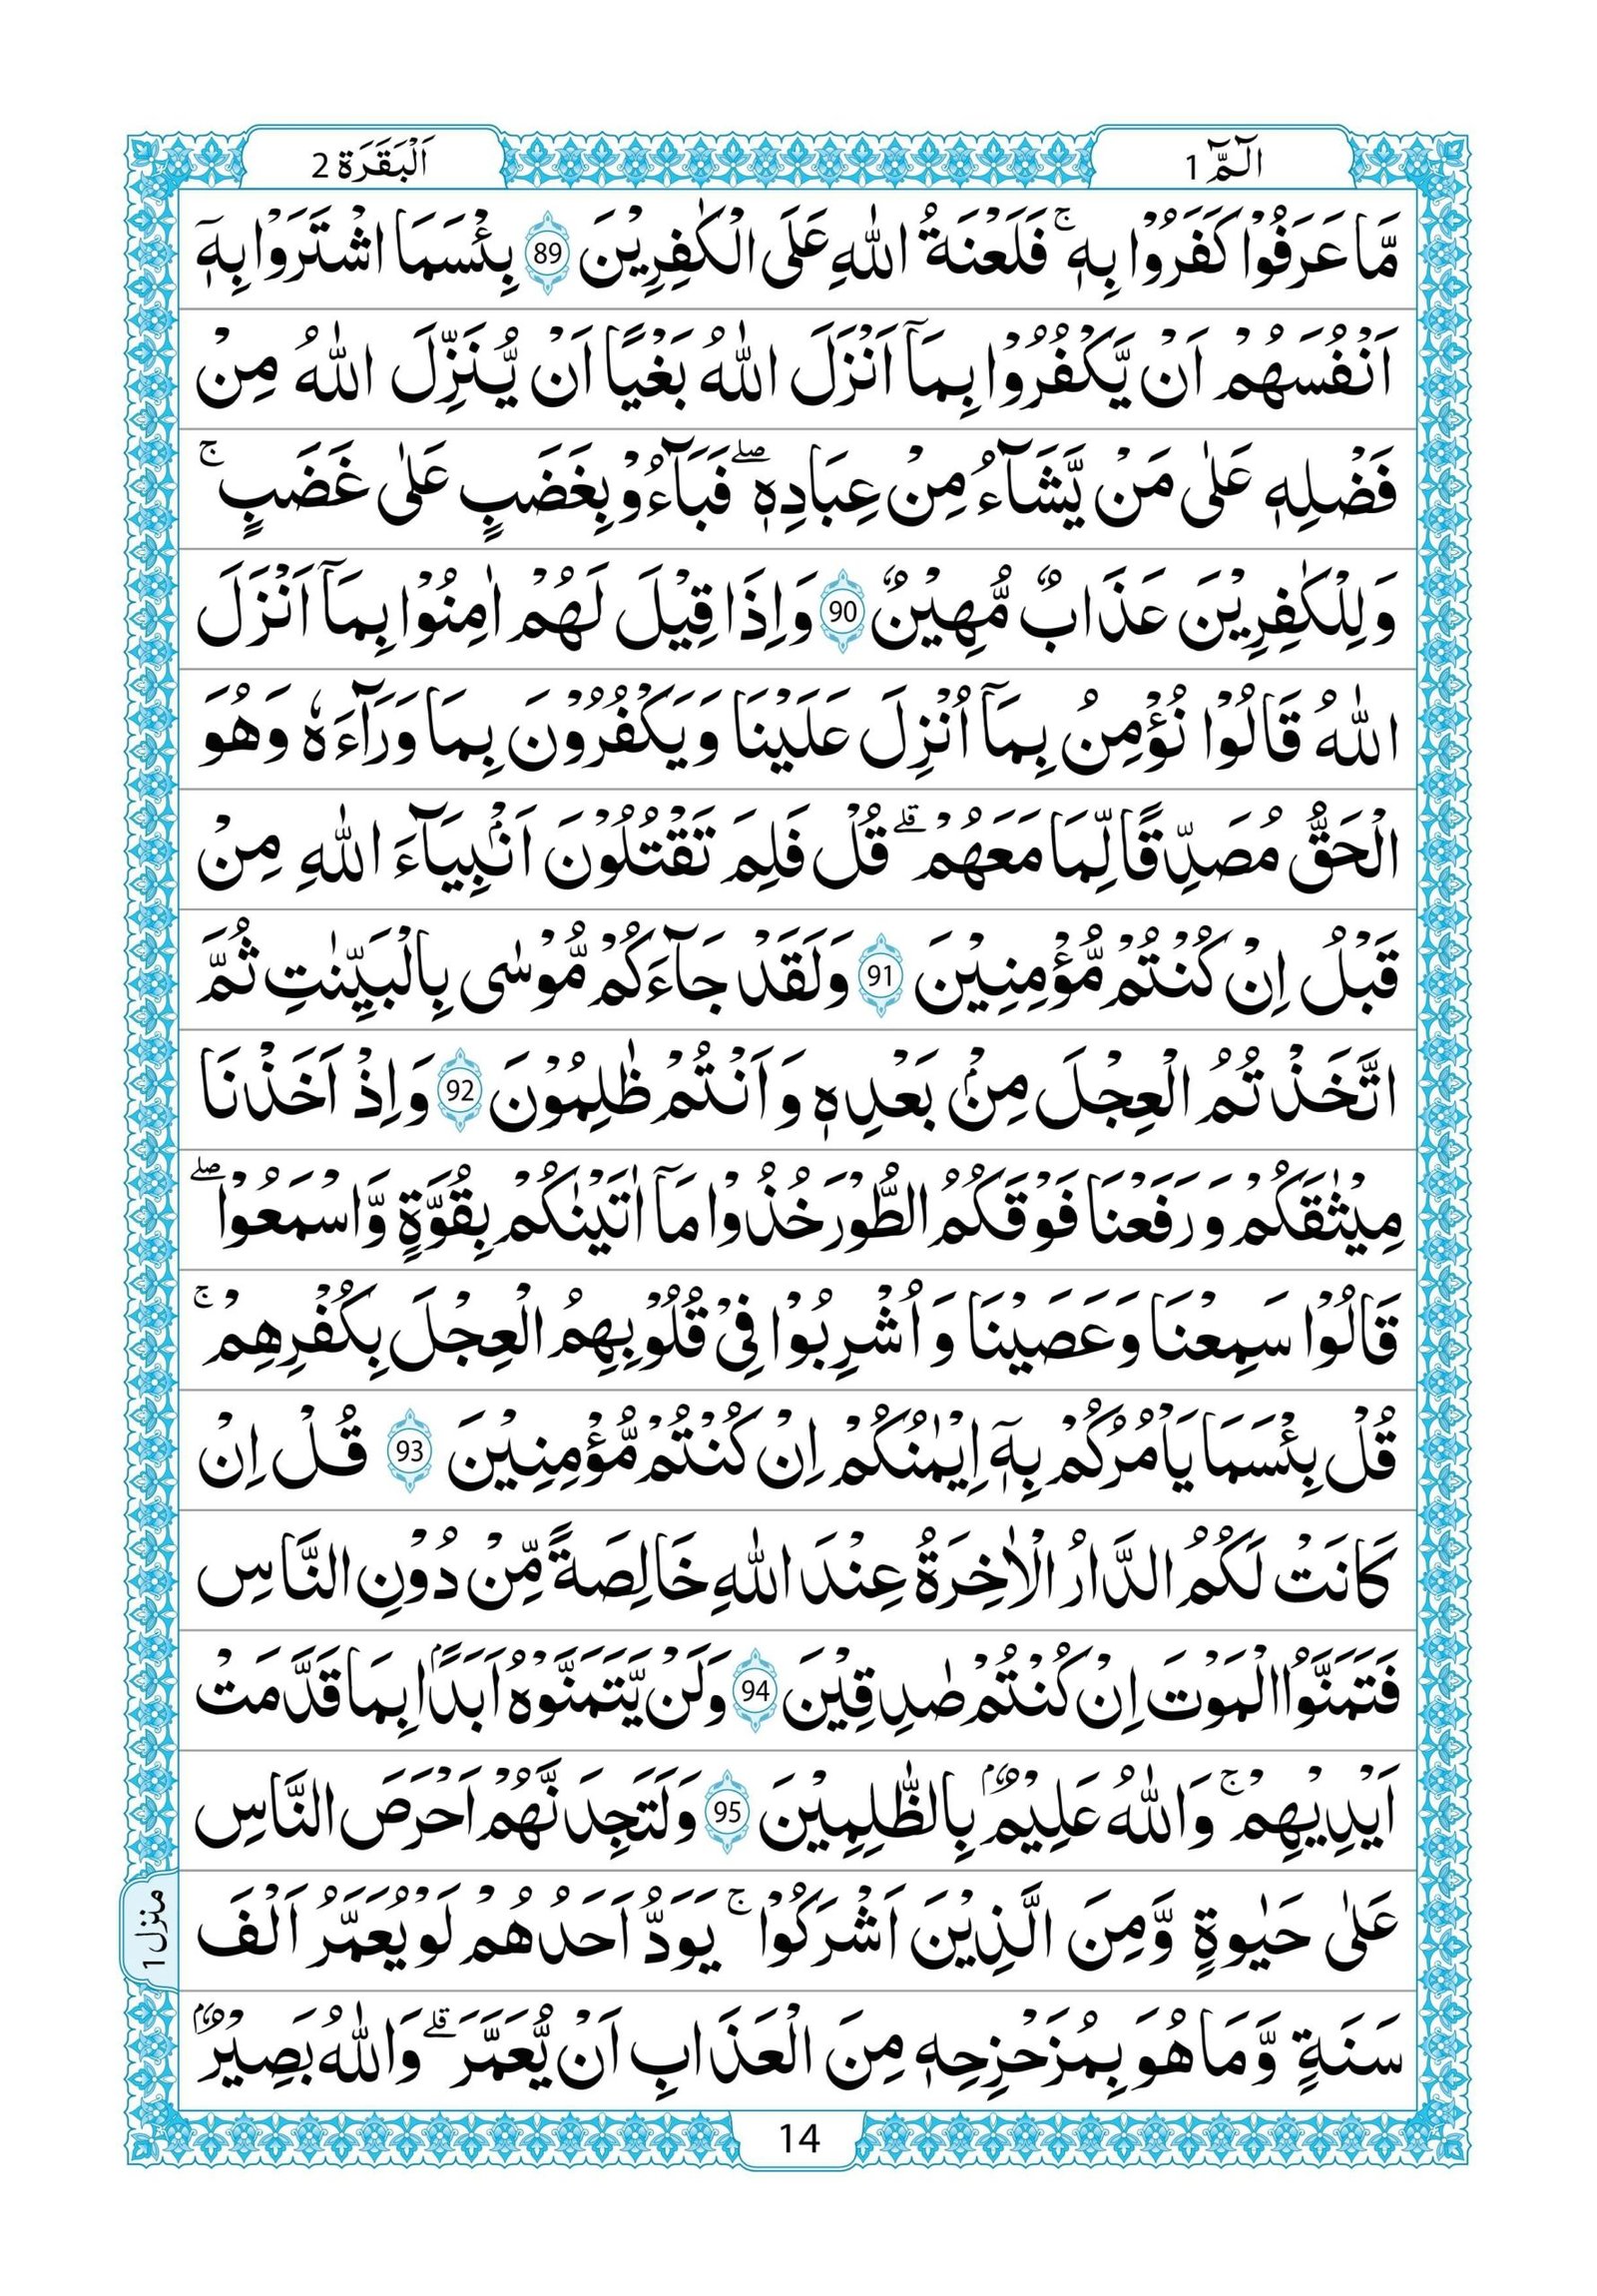 الٓـمّٓ 1
اَلْبَقَرَة 2
مَّا عَرَفُوْا كَفَرُوْا بِهٖ ۚ فَلَعْنَةُ اللّٰهِ عَلَى الْكٰفِرِيْنَ 89 بِئْسَمَا اشْتَرَوْا بِهٖۤ
اَنْفُسَهُمْ اَنْ يَّكْفُرُوْا بِمَاۤ اَنْزَلَ اللّٰهُ بَغْيًا اَنْ يُّنَزِّلَ اللّٰهُ مِنْ
فَضْلِهٖ عَلٰى مَنْ يَّشَآءُ مِنْ عِبَادِهٖ ۖ فَبَآءُوْ بِغَضَبٍ عَلٰى غَضَبٍ ۚ
وَلِلْكٰفِرِيْنَ عَذَابٌ مُّهِيْنٌ 90 وَاِذَا قِيْلَ لَهُمْ اٰمِنُوْا بِمَاۤ اَنْزَلَ
اللّٰهُ قَالُوْا نُؤْمِنُ بِمَاۤ اُنْزِلَ عَلَيْنَا وَيَكْفُرُوْنَ بِمَا وَرَآءَهٗ وَهُوَ
الْحَقُّ مُصَدِّقًا لِّمَا مَعَهُمْ ۗ قُلْ فَلِمَ تَقْتُلُوْنَ اَنْۢبِيَآءَ اللّٰهِ مِنْ
قَبْلُ اِنْ كُنْتُمْ مُّؤْمِنِيْنَ 91 وَلَقَدْ جَآءَكُمْ مُّوْسٰى بِالْبَيِّنٰتِ ثُمَّ
اتَّخَذْتُمُ الْعِجْلَ مِنْۢ بَعْدِهٖ وَاَنْتُمْ ظٰلِمُوْنَ 92 وَاِذْ اَخَذْنَا
مِيْثٰقَكُمْ وَرَفَعْنَا فَوْقَكُمُ الطُّوْرَ خُذُوْا مَاۤ اٰتَيْنٰكُمْ بِقُوَّةٍ وَّاسْمَعُوْا ۖ
قَالُوْا سَمِعْنَا وَعَصَيْنَا وَاُشْرِبُوْا فِيْ قُلُوْبِهِمُ الْعِجْلَ بِكُفْرِهِمْ ۚ
قُلْ بِئْسَمَا يَاْمُرُكُمْ بِهٖۤ اِيْمٰنُكُمْ اِنْ كُنْتُمْ مُّؤْمِنِيْنَ 93 قُلْ اِنْ
كَانَتْ لَكُمُ الدَّارُ الْاٰخِرَةُ عِنْدَ اللّٰهِ خَالِصَةً مِّنْ دُوْنِ النَّاسِ
فَتَمَنَّوُا الْمَوْتَ اِنْ كُنْتُمْ صٰدِقِيْنَ 94 وَلَنْ يَّتَمَنَّوْهُ اَبَدًۢا بِمَا قَدَّمَتْ
اَيْدِيْهِمْ ۚ وَاللّٰهُ عَلِيْمٌۢ بِالظّٰلِمِيْنَ 95 وَلَتَجِدَنَّهُمْ اَحْرَصَ النَّاسِ
عَلٰى حَيٰوةٍ وَّمِنَ الَّذِيْنَ اَشْرَكُوْا ۚ يَوَدُّ اَحَدُهُمْ لَوْ يُعَمَّرُ اَلْفَ
سَنَةٍ وَّمَا هُوَ بِمُزَحْزِحِهٖ مِنَ الْعَذَابِ اَنْ يُّعَمَّرَ ۗ وَاللّٰهُ بَصِيْرٌۢ
منزل 1
14